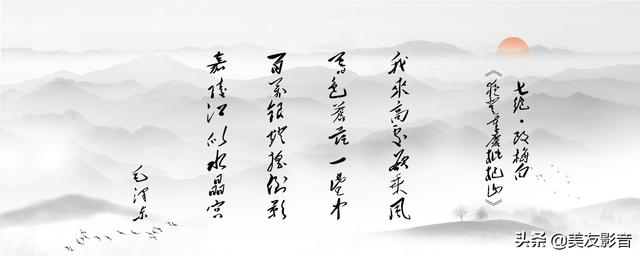 七绝·改梅白
《夜登重庆枇杷山》
我来高处欲乘风
暮色苍茫一望中
百万银灯摇倒影
嘉陵江似水晶宫
毛泽东
头条@美友影音